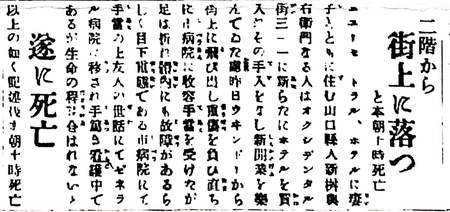 二階から
街上に落つ
と本朝十時死亡
ニューセントラル、ホテルに妻
子とともに住む山口縣人新樹與
右衛門なる人はオクシデンタル
街三一一に新らたにホテルを買
入れその手入をなし新開業を樂
んでゐた處昨日ウヰンドーから
街上に飛び出し重傷を負ひ直ち
に市病院に收容手當を受けたが
足は折れ體內にも故障があるら
しく目下重態である市病院にて
手當の上友人の世話にてゼネラ
ル病院に移され手篤き看護中で
あるが生命の程氣遣はれないと
遂に死亡
以上の如く記述後本朝十時死亡